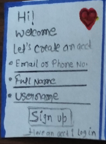 Hi!
Welcome
Let's create an acct
Email or Phone No.
Full Name
Username
Sign up!
Have an acct? Log in